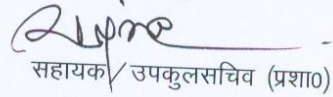 सहायक/ उपकुलसचिव (प्रशा0)